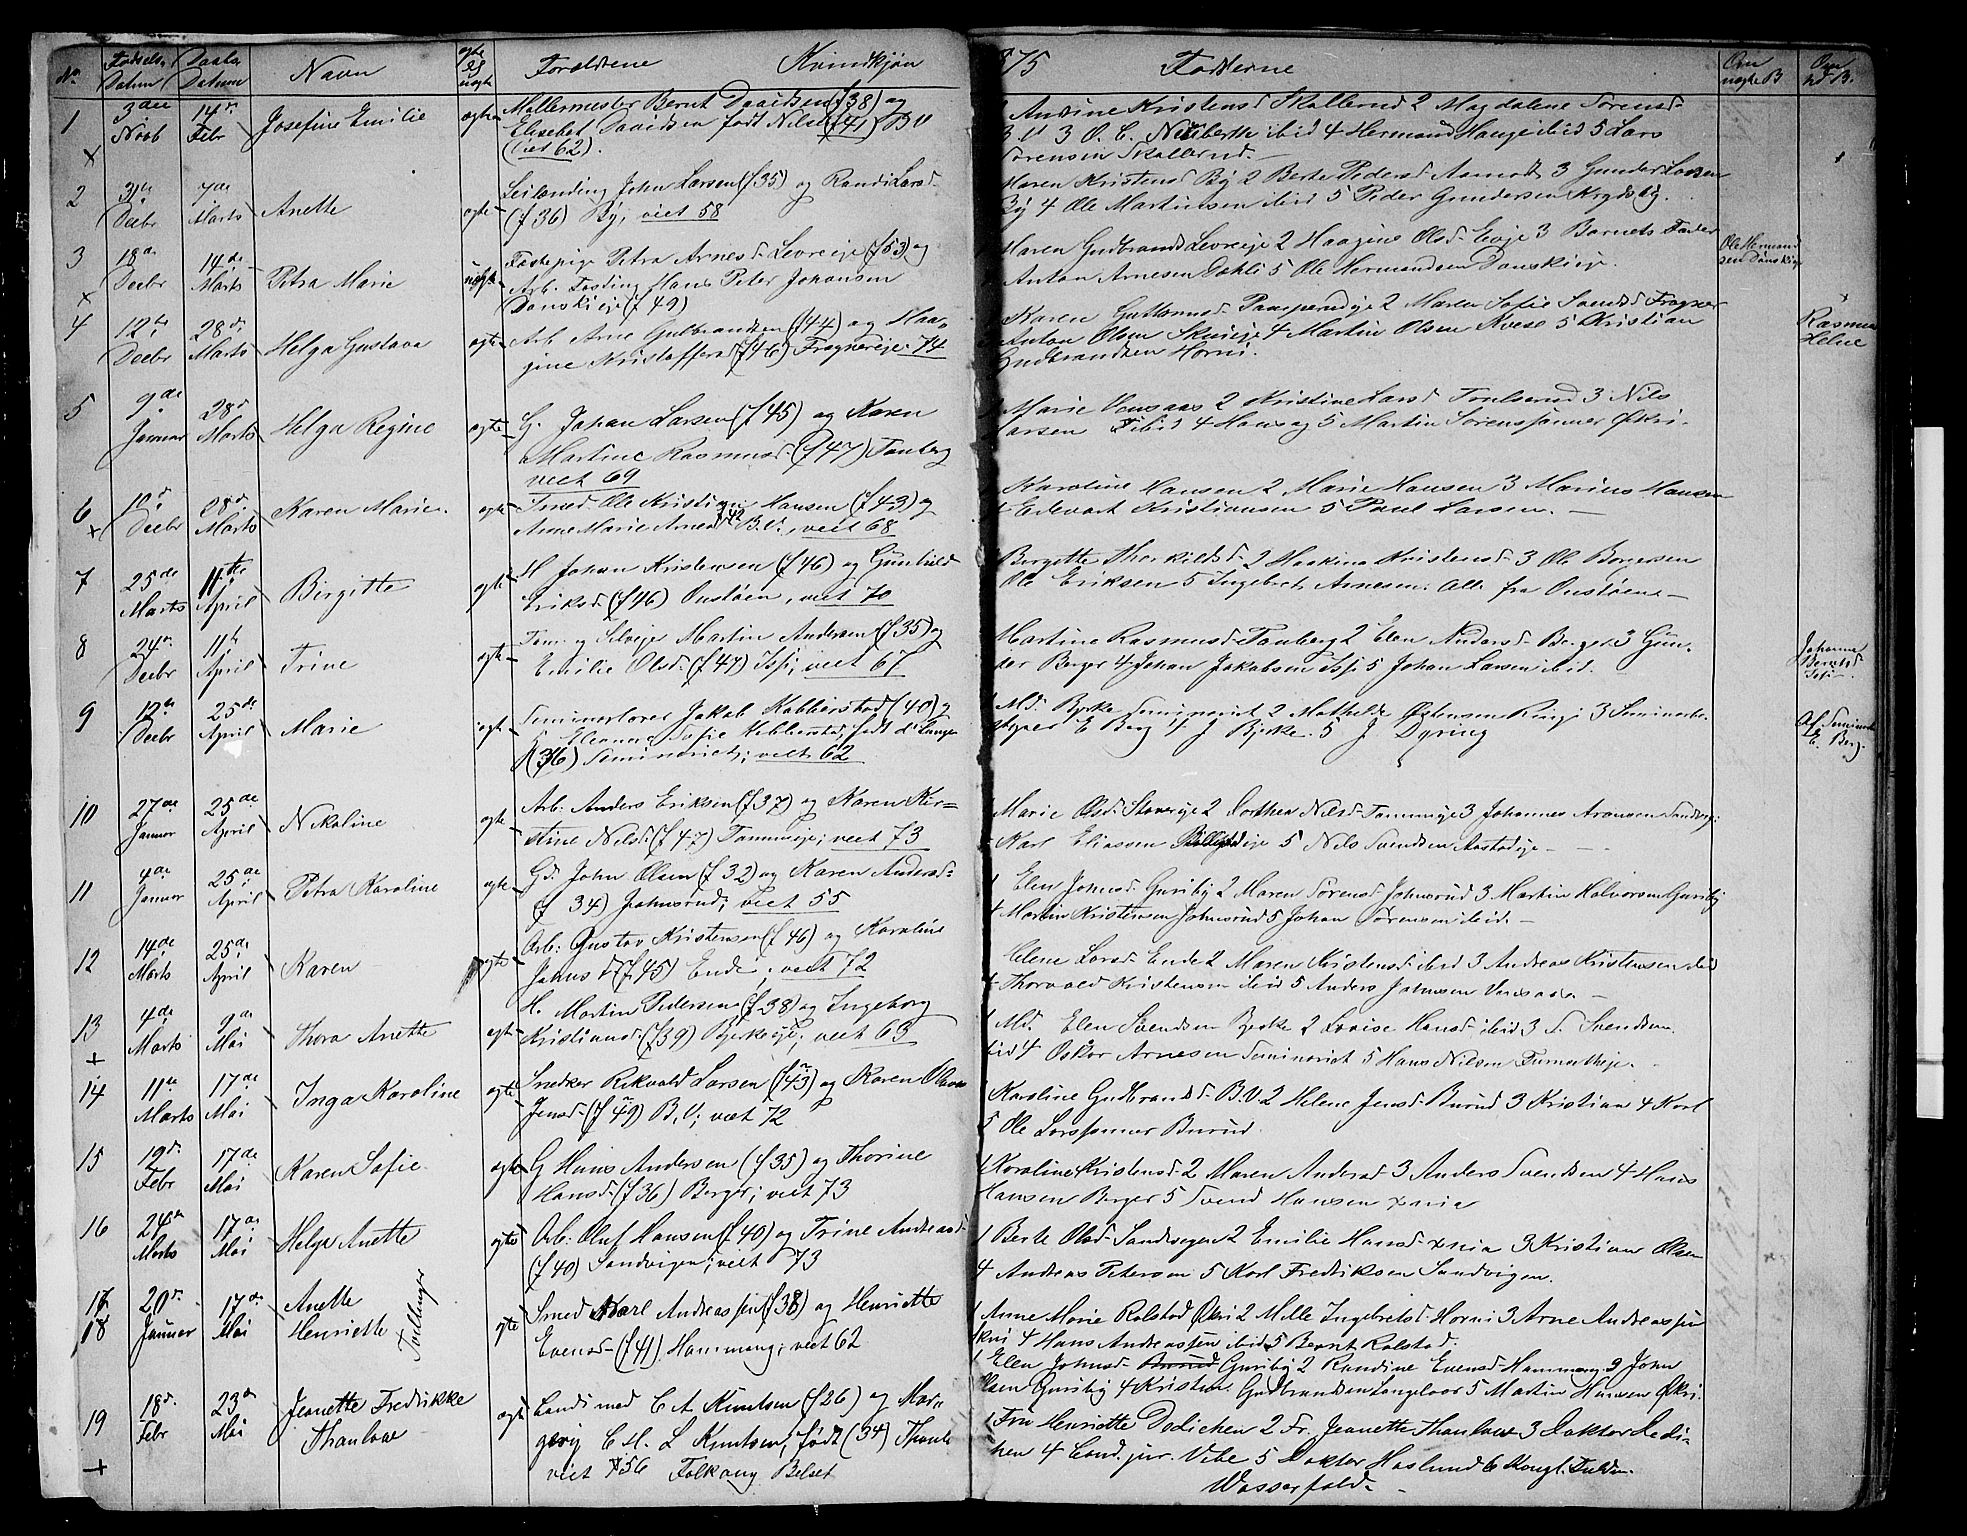 No. Fødsels Datum Daabs Datum Navn ægte el uægte Forældrene Kvindkjøn
1 3die Novb 14de Febr Josefine Emilie ægte Møllermester Bernt Davidsen (f 38) og
Elisabet Davidsen født Nilsen (41) B V
(viet 62).
2 31te Decbr 7de Marts Anette ægte Leilænding John Larsen (f 35) og Randi Larsd.
(f 36) By, viet 58
3 18de Decbr 14de Marts Petra Marie uægte Fæstepige Petra Arnesd Levreeje (f 53) og
Arb. Hans Peter Johansen
Danskeje (f 49)
4 12te Decbr 28de Marts Helga Gustava ægte Arb Arne Gulbrandsen (f 44) og Haa-
gine Kristoffersd (f 46) Frognereje 74
5 9de Januar 28de Marts Helga Regine ægte G. Johan Larsen (f 45) og Karen
Martine Rasmusd (f 47) Tanberg
viet 69
6 10de Decbr 28de Marts Karen Marie ægte Smed Ole Kristian Hansen (f 43) og
Anne Marie Arnesd B.V., viet 68
7 25de Marts 11te April Birgitte ægte H Johan Kristensen (f 46) og Gunhild
Eriksd. (f 46) Onstøen, viet 70
8 24de Decbr 11te April Trine ægte Tøm. og Selvejer Martin Andersen (f 35) og
Emilie Olsd. (f 47) viet 67
9 12te Decbr 25de April Marie ægte Seminarlærer Jakob Kobberstad (40) og
Eleonora Sofie Kobberstad, født d Lange
(36) Seminariet; viet 62
10 27de Januar 25de April Nikoline ægte Arb. Anders Eriksen (f 37) og Karen Kir-
stine Nilsd. (f 47) Tammeje; viet 73
11 4de Januar 25de April Petra Karoline ægte Gd. John Olsen (f 32) og Karen Andersd-
(f 34) Johnsrud; viet 55
12 14de Marts 25de April Karen ægte Arb. Gustav Kristensen (f 46) og Karoline
Johnsd (f 45) Ende; viet 72
13 4de Marts 9de Mai Thora Anette ægte H. Martin Pedersen (f 38) og Ingeborg
Kristiansd. (f 39) Bjerkeeje; viet 63
14 11te Marts 17de Mai Inga Karoline ægte Snedker Rikvald Larsen (f 43) og Karen
Jensd- (f 49) B.V; viet 72
15 19de Febr 17de Mai Karen Sofie ægte G Hans Andersen (f 35) og Thorine
Hansd- (f 36) Berger; viet 73
16 24de Marts 17de Mai Helga Anette ægte Arb. Oluf Hansen (f 40) og Trine Andreasd-
(f 40) Sandvigen; viet 73
17 18 20de Januar 17de Mai Anette Henriette Tvillinger ægte Smed Karl Andreassen (f 38) og Henriette
Evensd- (f 41) Hammang; viet 62
19 18de Febr 23de Mai Jeanette Fredrikke Thaulow ægte Landsmed C A Knutsen (f 26) og Mar-
grey C H. L Knutsen, født (34) Thaulo
viet 56 Folkvang Belset
875 Fadderne Om uægte B Om hd. B.
Andine Kristensd Skallerud 2 Magdalene Sørensd-
B V 3 O. C. ibid 4 Herman Hauge ibid 5 Lars
Sørensen Skallerud.
Maren Kristensd By 2 Berte Pedersd Aamodt 3 Gunder Larsen
By 4 Ole Martinsen ibid 5 Peder Gundersen Krydsby.
Maren Gudbrandsd Levreeje 2 Haagine Olsd- Evje 3 Barnets Fader
Anton Arnesen 5 Ole Hermandsen Danskeje. Ole Hermandsen Danskeje
Karen Guttormsd 2 Maren Sofie Svendsd Frogner
Anton Olsen Skuieje 4 Martin Olsen 5 Kristian
Gudbrandsen Horni. Rasmus Helne
Marie Vensaas 2 Kristine Larsd 3 Nils
Larsen ibid 4 Hans og 5 Martin Sørenssønner Økri.
Karoline Hansen 2 Marie Hansen 3 Marius Hansen
4 Edevart Kristiansen 5 Paul Larsen.
Bergitte Thorkildsd 2 Haakine Kristensd- 3 Ole Borgersen
Ole Eriksen 5 Ingebret Arnesen. Alle fra Onstøen.
Martine Rasmusd Tanberg 2 Elen Andersd- Berger 3 Gun-
der Berger 4 Johan Jakobsen 5 Johan Larsen ibid. Johanne Berntsd
Md. Bjerke Seminariet 2 Mathilde Ringi 3 Seminarbe-
styrer E Berg 4 J Bjerke. 5 J Dyring E. Berg.
Marie Olsd. Stovereje 2 Dorthea Nilsd Tammeje 3 Johannes Aronsen Sandvig;
Karl Eliassen 5 Nils Svendsen Aastadeje
1 Elen Johnsd- Guriby 2 Maren Sørensd. Johnsrud 3 Martin Halvorsen Guriby
4 Martin Kristensen Johnsrud 5 Johan Sørensen ibid.
Elene Larsd Ende 2 Maren Kristensd ibid 3 Andreas Kristensen ibid
4 Thorvald Kristensen ibid 5 Anders Johnsen Vensaas.
1 Md. Elen Svendsen Bjerke 2 Lovise Hansd- ibid 3 S. Svendsen
ibid 4 Oskar Arnesen Seminariet 5 Hans Nilsen
Karoline Gudbrandsd- B.V 2 Helene Jensd- Burud 3 Kristian 4 Karl
5 Ole Larssønner Burud
1 Karoline Kristensd- 2 Maren Andersd 3 Anders Svendsen 4 Hans
Hansen Berger 5 Svend Hansen xania
1 Berte Olsd- Sandvigen 2 Emilie Hansd- xnia 3 Kristian Olsen
4 Andreas Petersen 5 Karl Fredriksen Sandvigen.
Anne Marie Rolstad Økri 2 Mille Ingebretsd Horni 3 Arne Andreassen
Økri 4 Hans Andreassen ibid 5 Bernt Rolstad.
1 Elen Johnsd- Burud Guriby 2 Randine Evensd- Hammang 3 John
Olsen Guriby 4 Kristen. Gudbrandsen 5 Martin Hansen Økri.
1 Fru Henriette Dedichen 2 Fr. Jeanette Thaulow 3 Doktor Dedi-
chen 4 Cand. jur. Vibe 5 Doktor Haslund 6 Kongl. Fuldm.
Wasserfald.